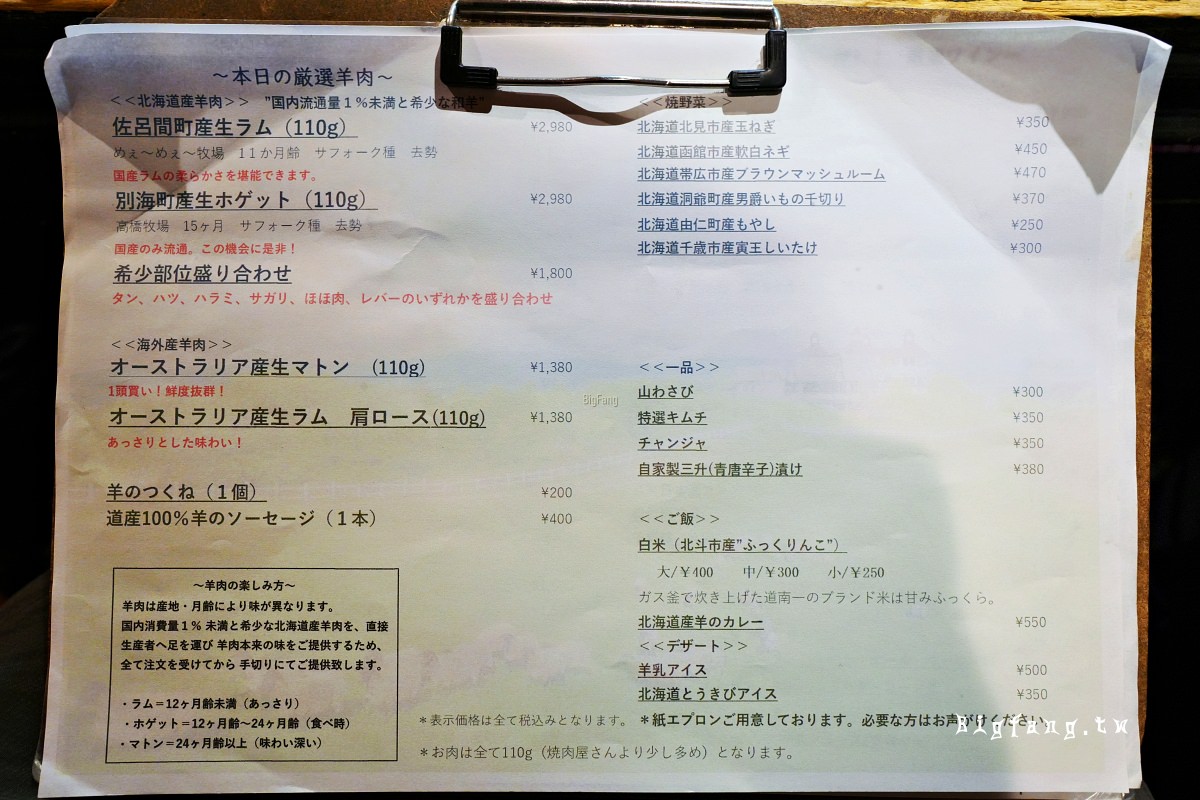 ～本日の厳選羊肉～
＜＜北海道産羊肉＞＞　"国内流通量１％未満と希少な和羊"
佐呂間町産生ラム（110g） ¥2,980
めぇ～めぇ～牧場　１１か月齢　サフォーク種　去勢
国産ラムの柔らかさを堪能できます。
別海町産生ホゲット（110g） ¥2,980
高橋牧場　15ヶ月　サフォーク種　去勢
国産のみ流通。この機会に是非！
希少部位盛り合わせ ¥1,800
タン、ハツ、ハラミ、サガリ、ほほ肉、レバーのいずれかを盛り合わせ
＜＜海外産羊肉＞＞
オーストラリア産生マトン　(110g) ¥1,380
1頭買い！鮮度抜群！
オーストラリア産生ラム　肩ロース(110g) ¥1,380
あっさりとした味わい！
羊のつくね（１個） ¥200
道産100％羊のソーセージ（１本） ¥400
～羊肉の楽しみ方～
羊肉は産地・月齢により味が異なります。
国内消費量１％ 未満と希少な北海道産羊肉を、直接
生産者へ足を運び 羊肉本来の味をご提供するため、
全て注文を受けてから 手切りにてご提供致します。
・ラム＝12ヶ月齢未満（あっさり）
・ホゲット＝12ヶ月齢～24ヶ月齢（食べ時）
・マトン＝24ヶ月齢以上（味わい深い）
＜＜焼野菜＞＞
北海道北見市産玉ねぎ ¥350
北海道函館市産軟白ネギ ¥450
北海道帯広市産ブラウンマッシュルーム ¥470
北海道洞爺町産男爵いもの千切り ¥370
北海道由仁町産もやし ¥250
北海道千歳市産寅王しいたけ ¥300
＜＜一品＞＞
山わさび ¥300
特選キムチ ¥350
チャンジャ ¥350
自家製三升(青唐辛子)漬け ¥380
＜＜ご飯＞＞
白米（北斗市産”ふっくりんこ”）
大/￥400　中/￥300　小/￥250
ガス釜で炊き上げた道南一のブランド米は甘みふっくら。
北海道産羊のカレー ¥550
＜＜デザート＞＞
羊乳アイス ¥500
北海道とうきびアイス ¥350
＊表示価格は全て税込みとなります。
＊紙エプロンご用意しております。必要な方はお声がけください。
＊お肉は全て110g（焼肉屋さんより少し多め）となります。
BigFang
Bigfang.tw